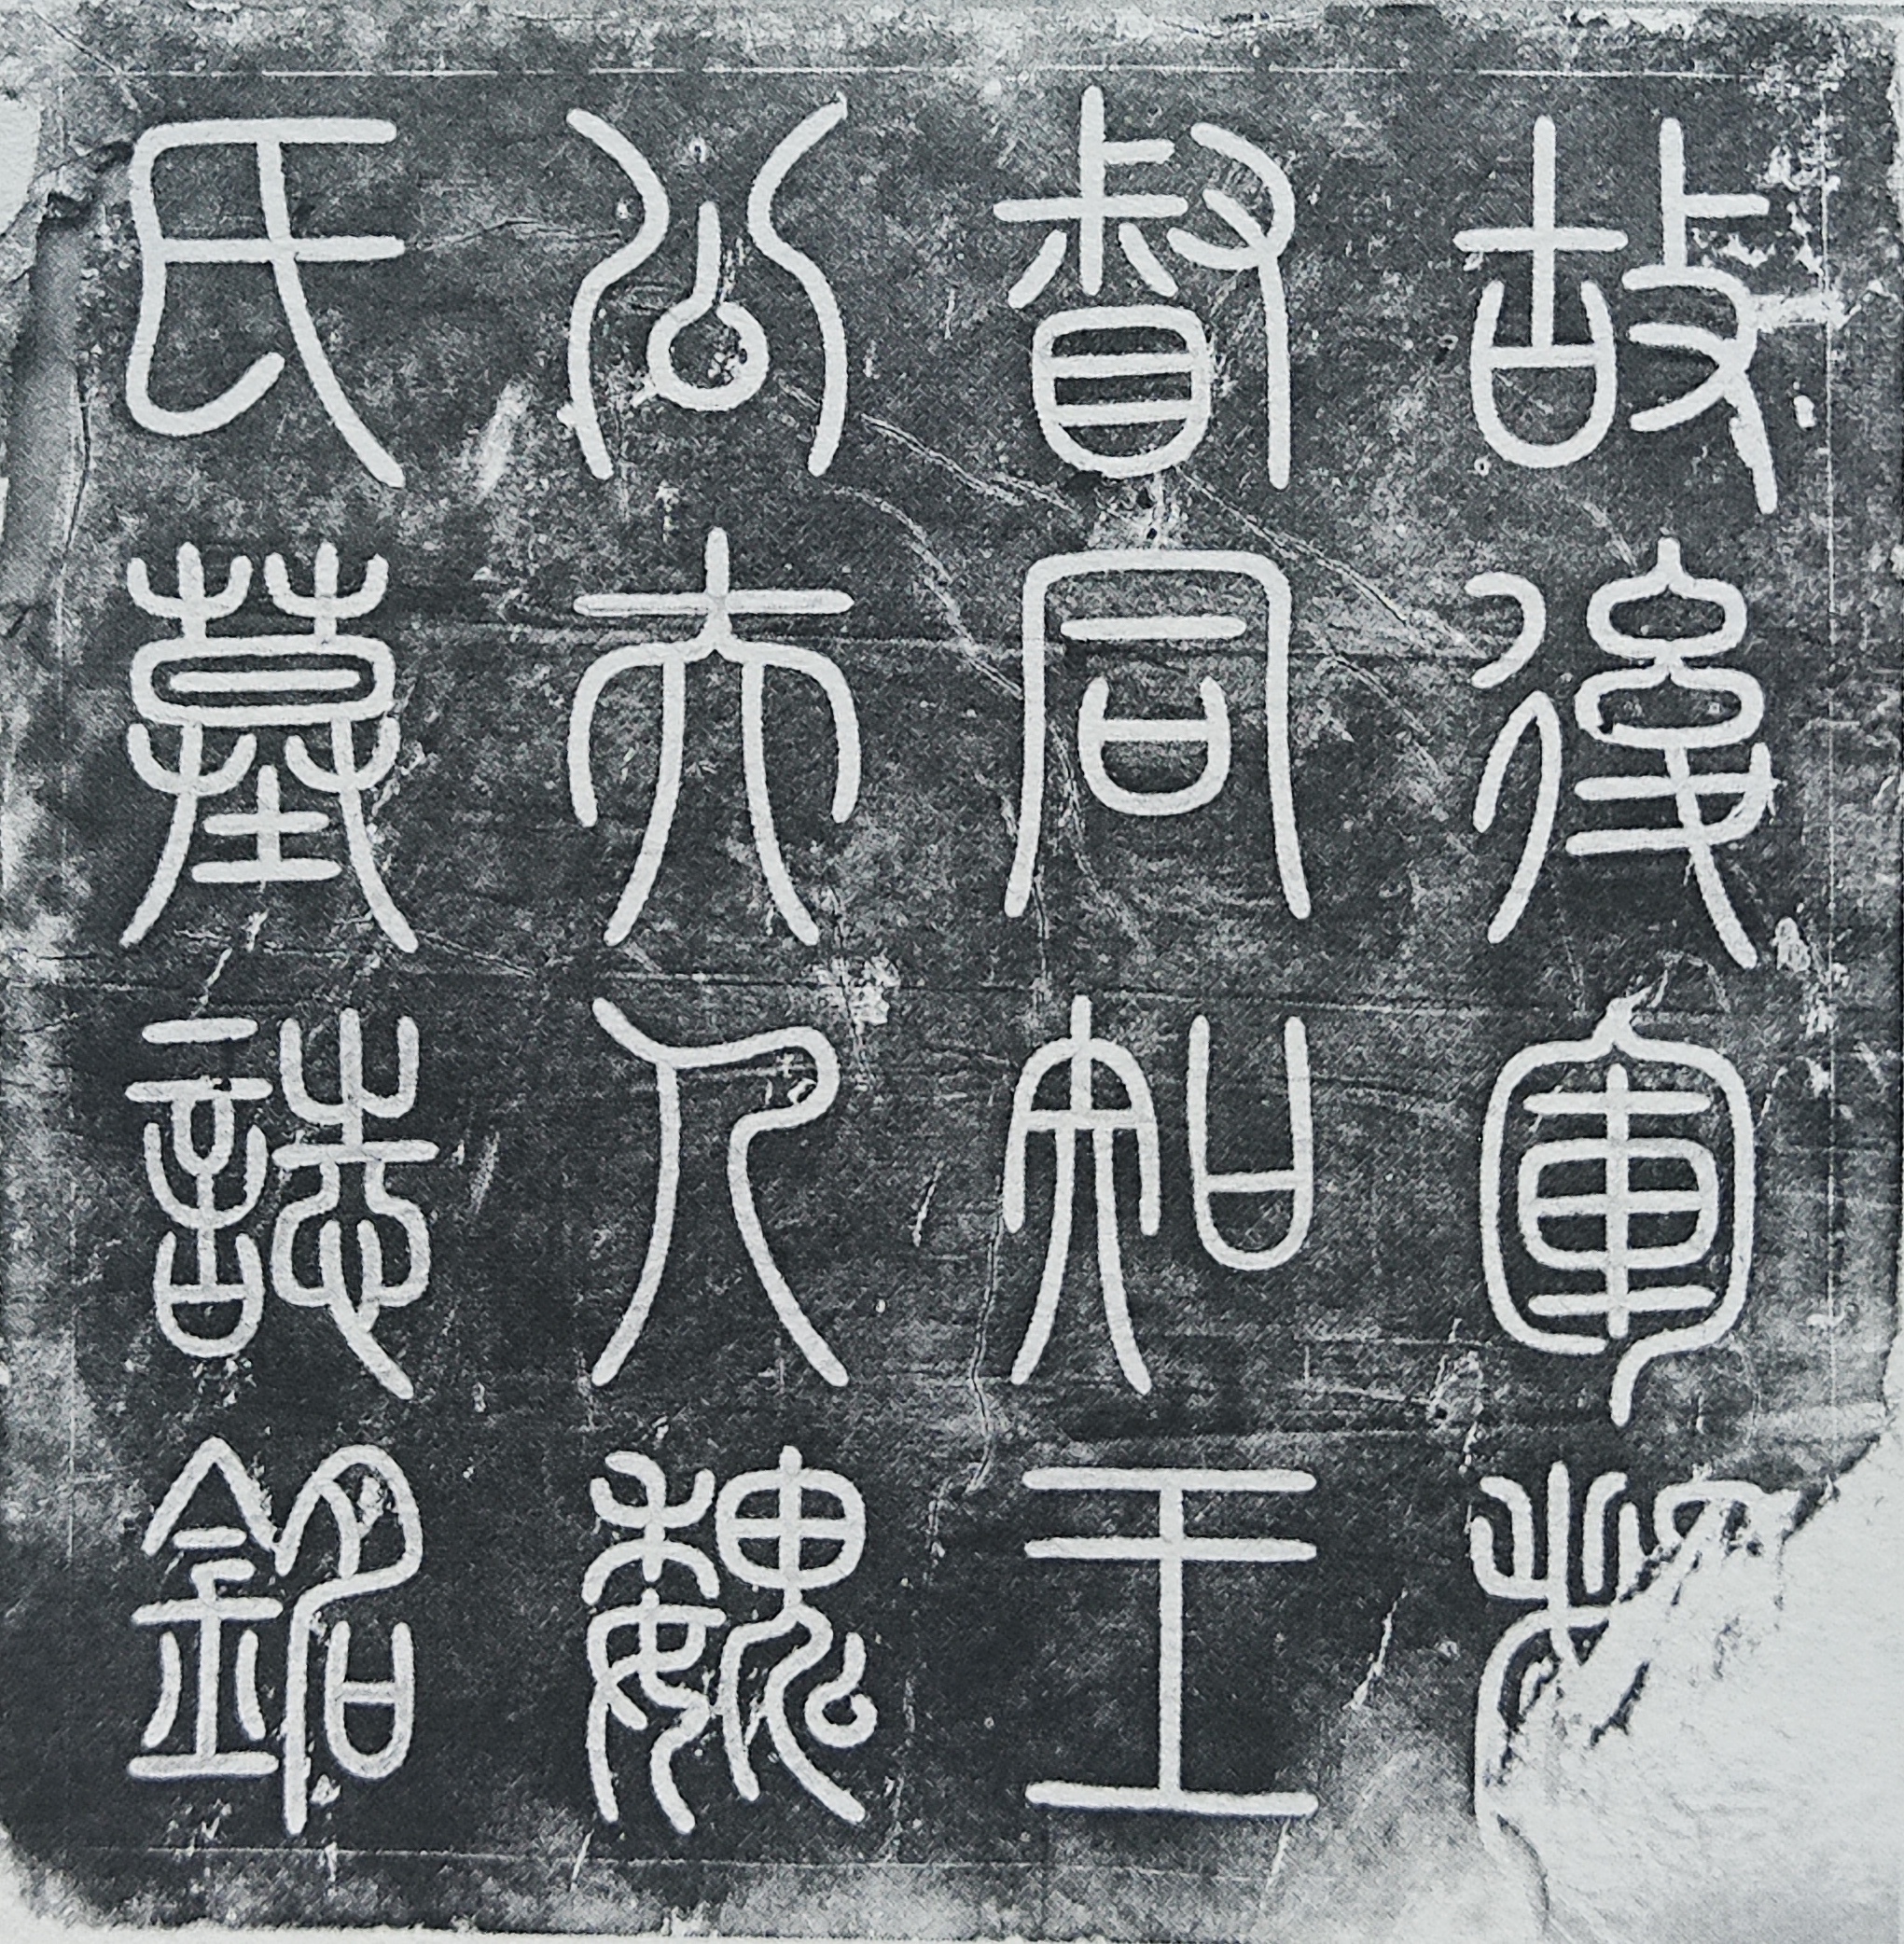 故後軍都
督同知王
公夫人魏
氏墓誌銘